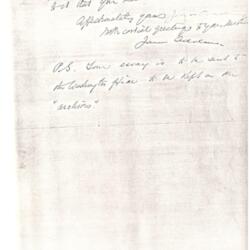 but that you
Affectionately yours
with cordial greetings to your
James
P.S. Your essay is to be sent to
the Washington office to be kept in the
"archives."